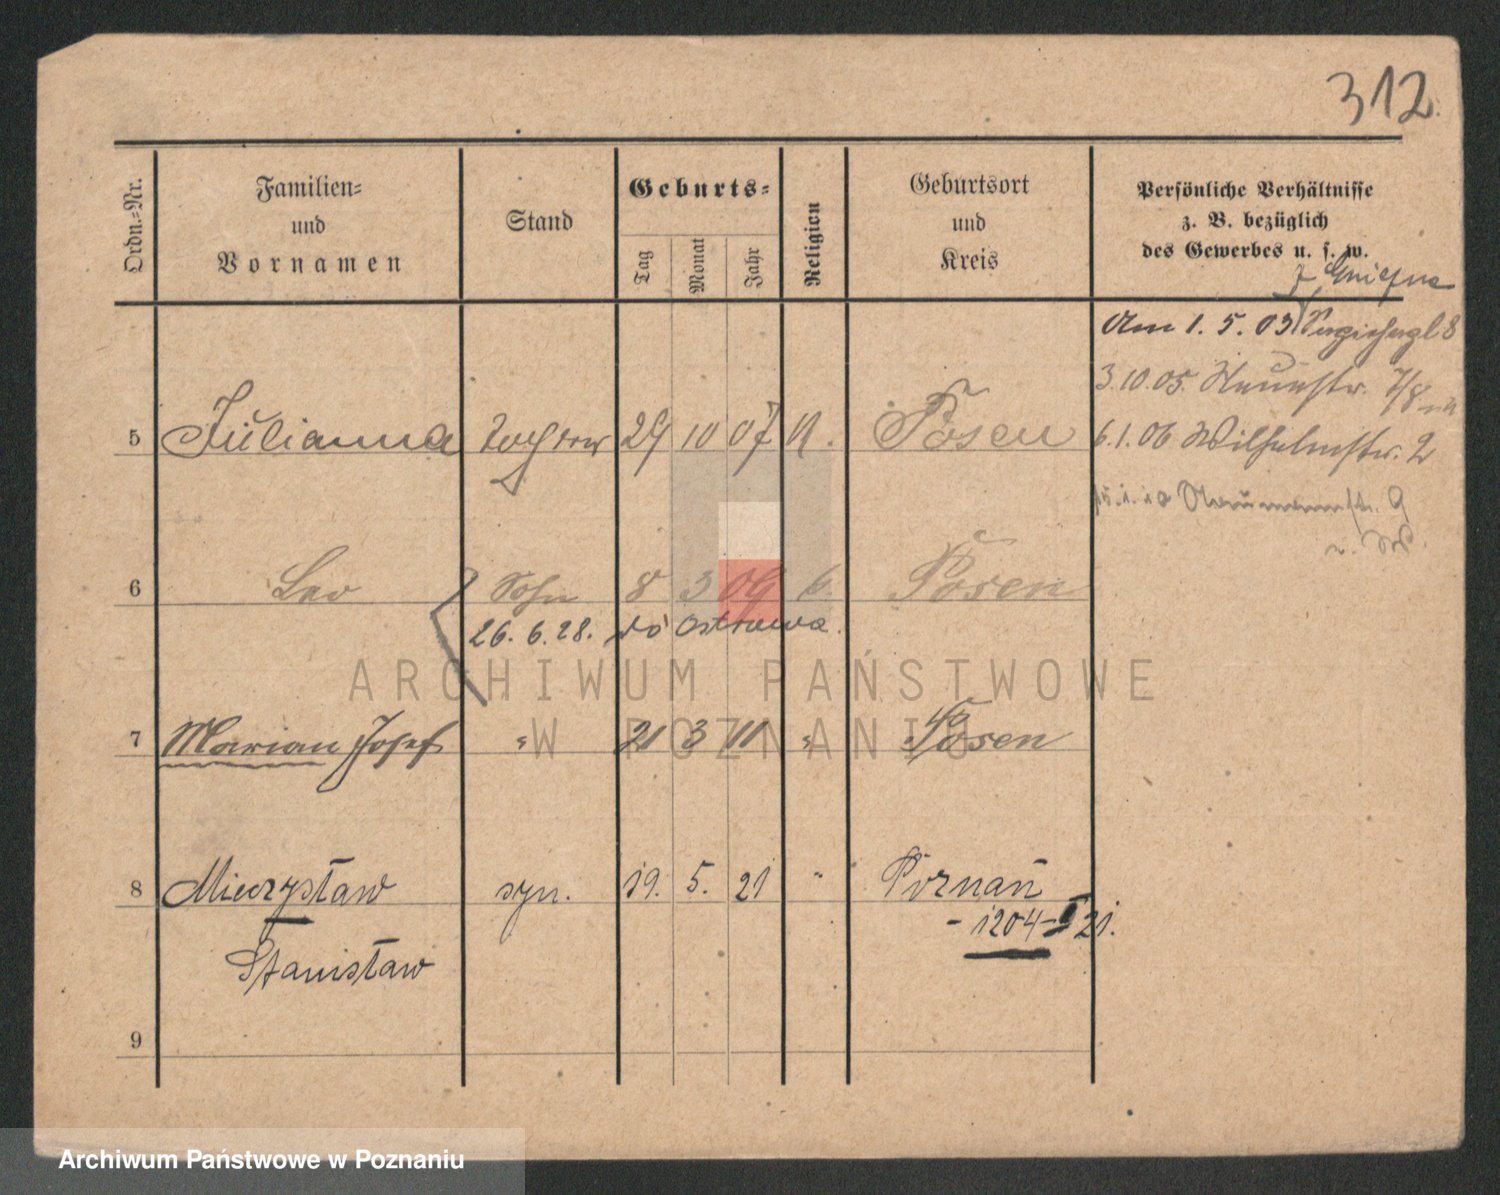 312.
Ordn.=Nr.
Familien=
und
Vornamen
Stand
Geburts=
Tag
Monat
Jahr
Religion
Geburtsort
und
Kreis
Persönliche Verhältnisse
z. B. bezüglich
des Gewerbes u. s. w.
z Gniezna
Am 1. 5. 03
8
3.10.05.
7/8
5 Julianna Tochter 29 10 07 Posen
6.1.06 Wilhelmstr. 2
15.1.10 9
6 Leo Sohn 8 3 09 k. Posen
26. 6. 28. do Ostrowa.
7 Marian Josef " 21 3 11 " Posen
8 Mieczysław syn. 19. 5. 21 " Poznań
- 1204 - 21.
Stanisław
9
ARCHIWUM PAŃSTWOWE
W POZNANIU
Archiwum Państwowe w Poznaniu